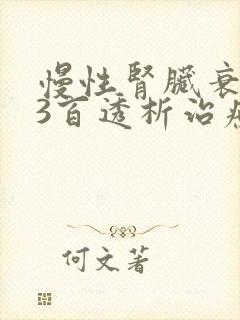 慢性腎臟衰
3百透析治
何文著